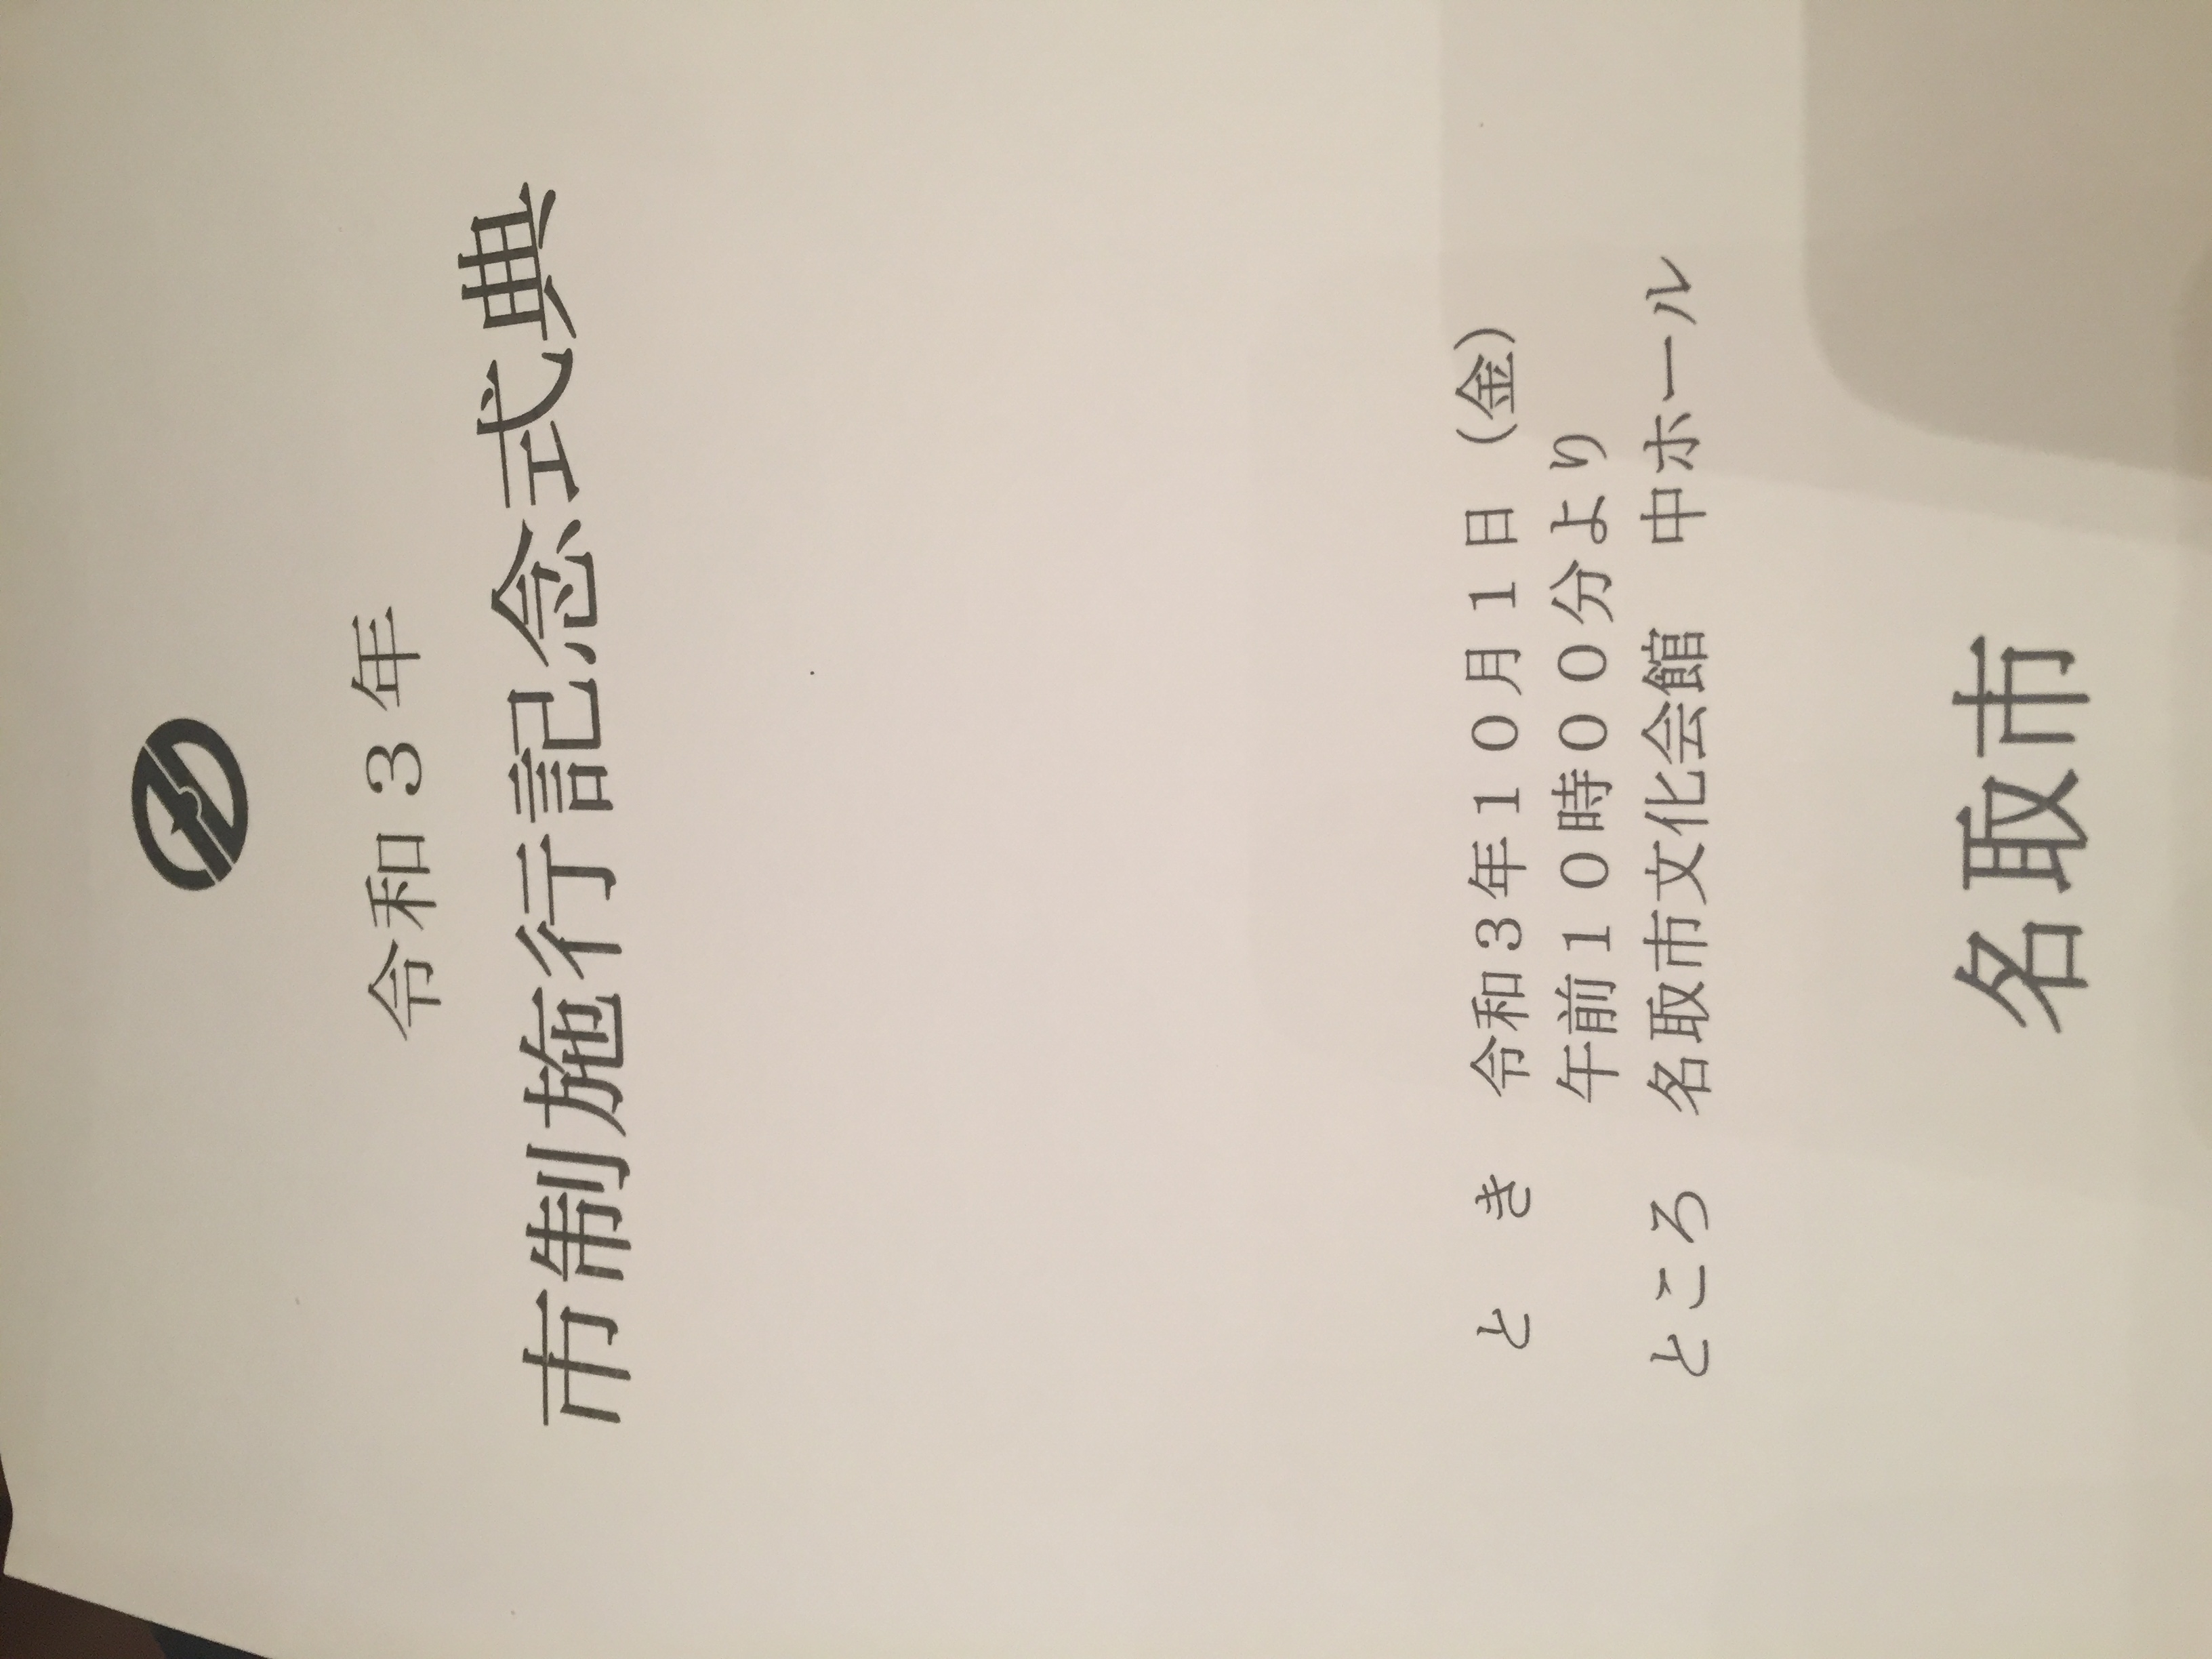 令和３年
市制施行記念式典
と　き　令和３年１０月１日（金）
午前１０時００分より
ところ　名取市文化会館　中ホール
名取市